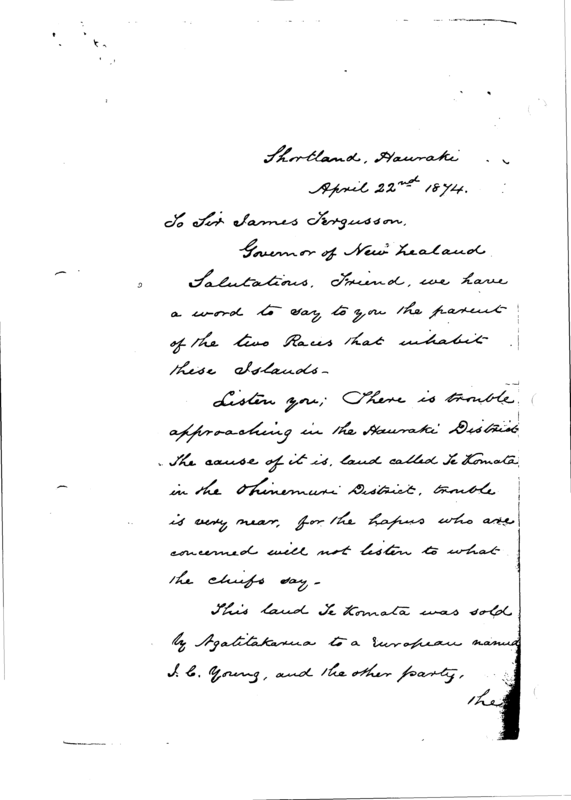 Shortland, Hauraki
April 22nd 1874.
To Sir James Fergusson,
Governor of New Zealand
Salutations. Friend, we have
a word to say to you the parent
of the two Races that inhabit
these Islands-
Listen you; There is trouble
approaching in the Hauraki District
The cause of it is, land called Te Komata
in the Ohinemuri District, trouble
is very near, for the hapus who are
concerned will not listen to what
the chiefs say-
This land Te Komata was sold
by to a European named
J. C. Young, and the other party,
the